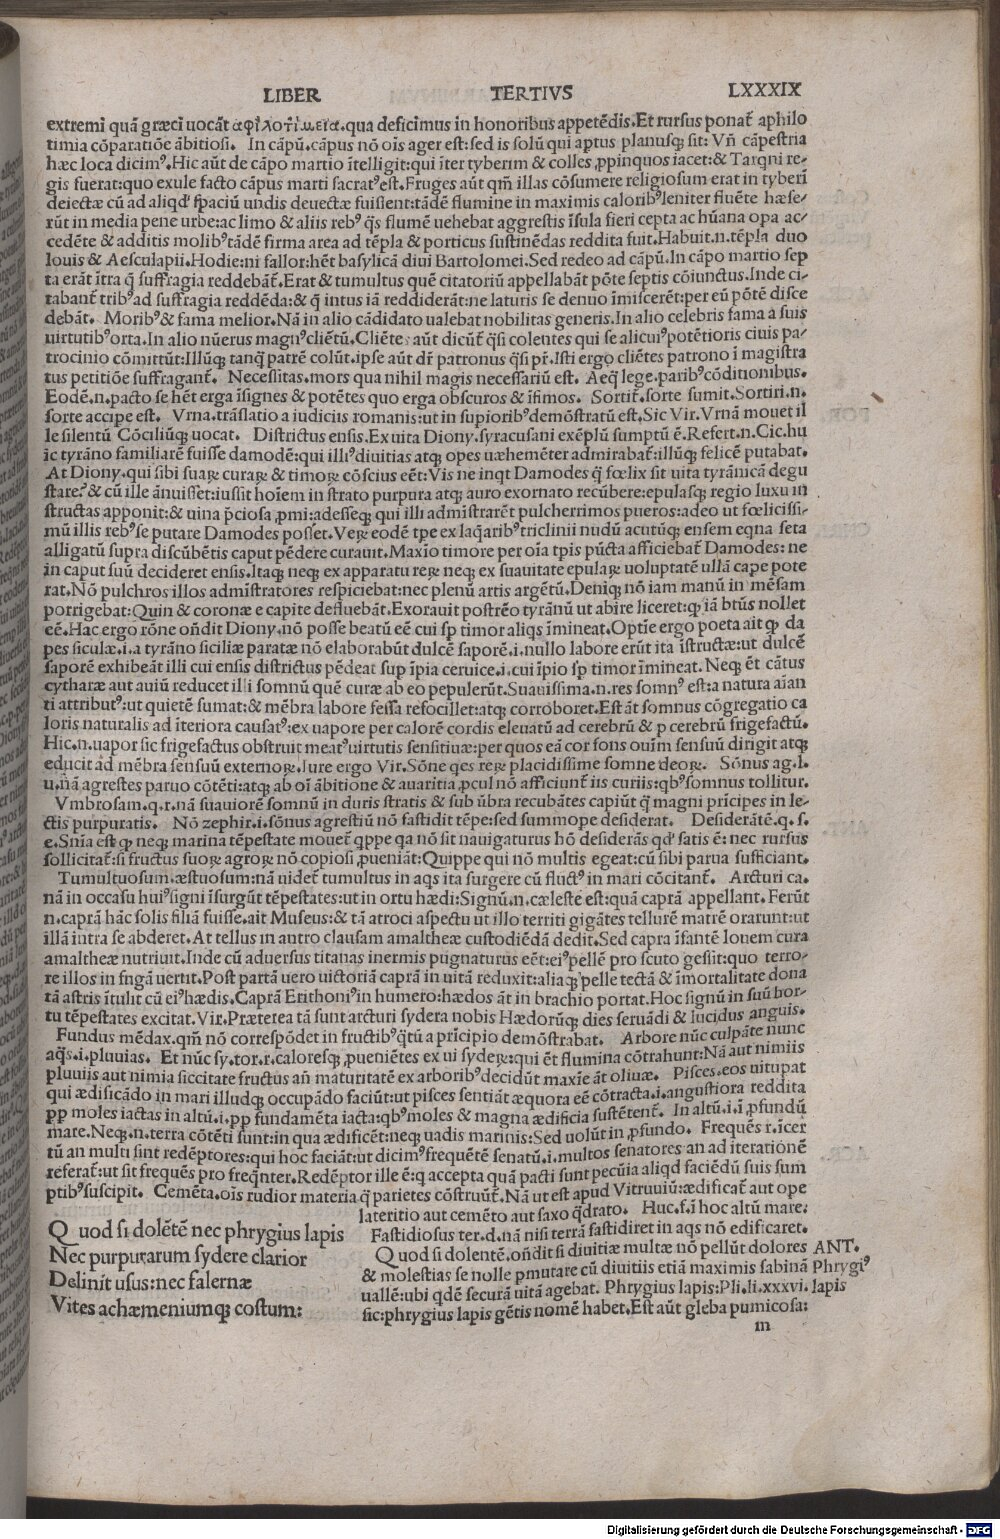 LIBER TERTIVS LXXXIX
extremi quā græci uocāt ἀφιλοτιμεία.qua deficimus in honoribus appetēdis.Et rursus ponat̄ aphilo
timia cōparatiōe ābitiosi. In cāpū.cāpus nō oīs ager est:sed is solū qui aptus planusq; sit: Vn̄ cāpestria
hæc loca dicimꝰ.Hic aūt de cāpo martio ītelligit:qui īter tyberim & colles ꝓpinquos iacet:& Tarqni re-
gis fuerat:quo exule facto cāpus marti sacratꝰest.Fruges aūt qm̄ illas cōsumere religiosum erat in tyberī
deiectæ cū ad aliqd' spaciū undis deuectæ fuissent:tādē flumine in maximis caloribꝰleniter fluēte hæse-
rūt in media pene urbe:ac limo & aliis rebꝰ q̄s flumē uehebat aggrestis īsula fieri cepta ac hūana opa ac-
cedēte & additis molibꝰtādē firma area ad tēpla & porticus sustinēdas reddita fuit.Habuit.n.tēpla duo
Iouis & Aesculapii.Hodie:ni fallor:hēt basylicā diui Bartolomei.Sed redeo ad cāpū.In cāpo martio sep
ta erāt ītra q̄ suffragia reddebāt̄.Erat & tumultus quē citatoriū appellabāt pōte septis cōiunctus.Inde ci-
tabant̄ tribꝰad suffragia reddēda:& q̄ intus iā reddiderāt:ne laturis se denuo īmiscerēt:per eū pōtē disce
debāt. Moribꝰ& fama melior.Nā in alio cādidato ualebat nobilitas generis.In alio celebris fama a suis
uirtutibꝰorta.In alio nūerus magnꝰcliētū.Cliētes aūt dicūt̄ q̄si colentes qui se alicuiꝰpotētioris ciuis pa-
trocinio cōmittūt:Illūq; tanq̄ patrē colūt.ipse aūt dr̄ patronus q̄si pr̄.Isti ergo cliētes patrono ī magistra
tus petitiōe suffragant̄. Necessitas.mors qua nihil magis necessariū est. Aeq̄ lege.paribꝰcōditionibus.
Eodē.n.pacto se hēt erga īsignes & potētes quo erga obscuros & īfimos. Sortit̄.sorte sumit.Sortiri.n.
sorte accipe est. Vrna.trāslatio a iudiciis romanis:ut in supioribꝰdemōstratū est.Sic Vir.Vrnā mouet il
le silentū Cōciliūq; uocat. Districtus ensis.Ex uita Diony.syracusani exēplū sumptū ē.Refert.n.Cic.hu
ic tyrāno familiarē fuisse damodē:qui illiꝰdiuitias atq; opes uæhemēter admirabat̄:illūq; felicē putabat.
At Diony.qui sibi suaꝝ curaꝝ & timoꝝ cōscius eēt:Vis ne inqt Damodes q̄ fœlix sit uita tyrānicā degu
stare?& cū ille ānuisset:iussit hoīem in strato purpura atq; auro exornato recūbere:epulasq; regio luxu in
structas apponit:& uina p̄ciosa ꝓmi:adesseq; qui illi admīstrarēt pulcherrimos pueros:adeo ut fœlicissi-
mū illis rebꝰse putare Damodes posset.Veꝝ eodē tpe ex laq̄aribꝰtriclinii nudū acutūq; ensem eqna seta
alligatū supra discūbētis caput pēdere curauit.Maxīo timore per oīa tpis pūcta afficiebat̄ Damodes: ne
in caput suū decideret ensis.Itaq; neq; ex apparatu reꝝ neq; ex suauitate epulaꝝ uoluptatē ullā cape pote
rat.Nō pulchros illos admīstratores respiciebat:nec plenū artis argētū.Deniq; nō iam manū in mēsam
porrigebat:Quin & coronæ e capite defluebāt.Exorauit postrēo tyrānū ut abire liceret:ꝙ iā btūs nollet
eē.Hac ergo rōne on̄dit Diony.nō posse beatū eē cui sp timor aliqs īmineat.Optīe ergo poeta ait ꝙ da
pes siculæ.i.a tyrāno siciliæ paratæ nō elaborabūt dulcē saporē.i.nullo labore erūt ita īstructæ:ut dulcē
saporē exhibeāt illi cui ensis districtus pēdeat sup īpia ceruice.i.cui īpio sp timor īmineat. Neq; ēt cātus
cytharæ aut auiū reducet illi somnū quē curæ ab eo pepulerūt.Suauissima.n.res somnꝰ est:a natura aīan
ti attributꝰ:ut quietē sumat:& mēbra labore fessa refocillet:atq; corroboret.Est āt somnus cōgregatio ca
loris naturalis ad īteriora causatꝰ:ex uapore per calorē cordis eleuatū ad cerebrū & p cerebrū frigefactū.
Hic.n.uapor sic frigefactus obstruit meatꝰuirtutis sensitiuæ:per quos eā cor fons ouīm sensuū dirigit atq;
educit ad mēbra sensuū externoꝝ.Iure ergo Vir.Sōne qes reꝝ placidissime somne deoꝝ. Sōnus ag.l.
u.nā agrestes paruo cōtēti:atq; ab oī ābitione & auaritia ꝓcul nō afficiunt̄ iis curiis:qbꝰsomnus tollitur.
Vmbrosam.q.r.nā suauiorē somnū in duris stratis & sub ūbra recubātes capiūt q̄ magni prīcipes in le-
ctis purpuratis. Nō zephir.i.sōnus agrestiū nō fastidit tēpe:sed summope desiderat. Desiderātē.q.s.
e.Snīa est ꝙ neq; marina tēpestate mouet̄ qppe qa nō sit nauigaturus hō desiderās qd' satis ē: nec rursus
sollicitat̄:si fructus suoꝝ agroꝝ nō copiosi ꝓueniāt:Quippe qui nō multis egeat:cū sibi parua sufficiant.
Tumultuosum.æstuosum:nā uidet̄ tumultus in aqs ita surgere cū fluctꝰ in mari cōcitant̄. Arcturi ca.
nā in occasu huiꝰsigni īsurgūt tēpestates:ut in ortu hædi:Signū.n.cæleste est:quā caprā appellant.Ferūt
n.caprā hāc solis filiā fuisse.ait Museus:& tā atroci aspectu ut illo territi gigātes tellurē matrē orarunt:ut
illā intra se abderet.At tellus in antro clausam amaltheæ custodiēdā dedit.Sed capra īfantē Iouem cura
amaltheæ nutriuit.Inde cū aduersus titanas inermis pugnaturus eēt:eiꝰpellē pro scuto gessit:quo terro-
re illos in fugā uertit.Post partā uero uictoriā caprā in uitā reduxit:aliaq; pelle tectā & īmortalitate dona
tā astris ītulit cū eiꝰhædis.Caprā Erithoniꝰin humero:hædos āt in brachio portat.Hoc signū in suū hor-
tu tēpestates excitat.Vir.Præterea tā sunt arcturi sydera nobis Hædorūq; dies seruādi & lucidus anguis.
Fundus mēdax.qm̄ nō correspōdet in fructibꝰq̄tū a prīcipio demōstrabat. Arbore nūc culpāte nunc
aq̄s.i.pluuias. Et nūc sy.tor.r.caloresq; ꝓueniētes ex ui sydeꝝ:qui ēt flumina cōtrahunt:Nā aut nimiis
pluuiis aut nimia siccitate fructus an̄ maturitatē ex arboribꝰdecidūt maxīe āt oliuæ. Pisces.eos uitupat
qui ædificādo in mari illudq; occupādo faciūt:ut pisces sentiāt æquora eē cōtracta.i.angustiora reddita
pp moles iactas in altū.i.pp fundamēta iacta:qbꝰmoles & magna ædificia sustētent̄. In altū.i.ī ꝓfundū
mare.Neq;.n.terra cōtēti sunt:in qua ædificēt:neq; uadis marinis:Sed uolūt in ꝓfundo. Frequēs r.īcer
tū an multi sint redēptores:qui hoc faciāt:ut dicimꝰfrequētē senatū.i.multos senatores an ad iterationē
referat̄:ut sit frequēs pro freq̄nter.Redēptor ille ē:q accepta quā pacti sunt pecūia aliqd faciēdū suis sum
ptibꝰsuscipit. Cemēta.oīs rudior materia q̄ parietes cōstruūt̄.Nā ut est apud Vitruuiū:ædificat̄ aut ope
lateritio aut cemēto aut saxo q̄drato. Huc.f.ī hoc altū mare:
Fastidiosus ter.d.nā nisi terrā fastidiret in aqs nō edificaret.
Quod si dolētē nec phrygius lapis
Nec purpurarum sydere clarior
Delinit usus:nec falernæ
Vites achæmeniumq; costum:
Quod si dolentē.on̄dit si diuitiæ multæ nō pellūt dolores
& molestias se nolle pmutare cū diuitiis etiā maximis sabinā
uallē:ubi qdē securā uitā agebat. Phrygius lapis:Pli.li.xxxvi.
sic:phrygius lapis gētis nomē habet.Est aūt gleba pumicosa:
ANT.
Phrygiꝰ
lapis
m
Digitalisierung gefördert durch die Deutsche Forschungsgemeinschaft - DFG